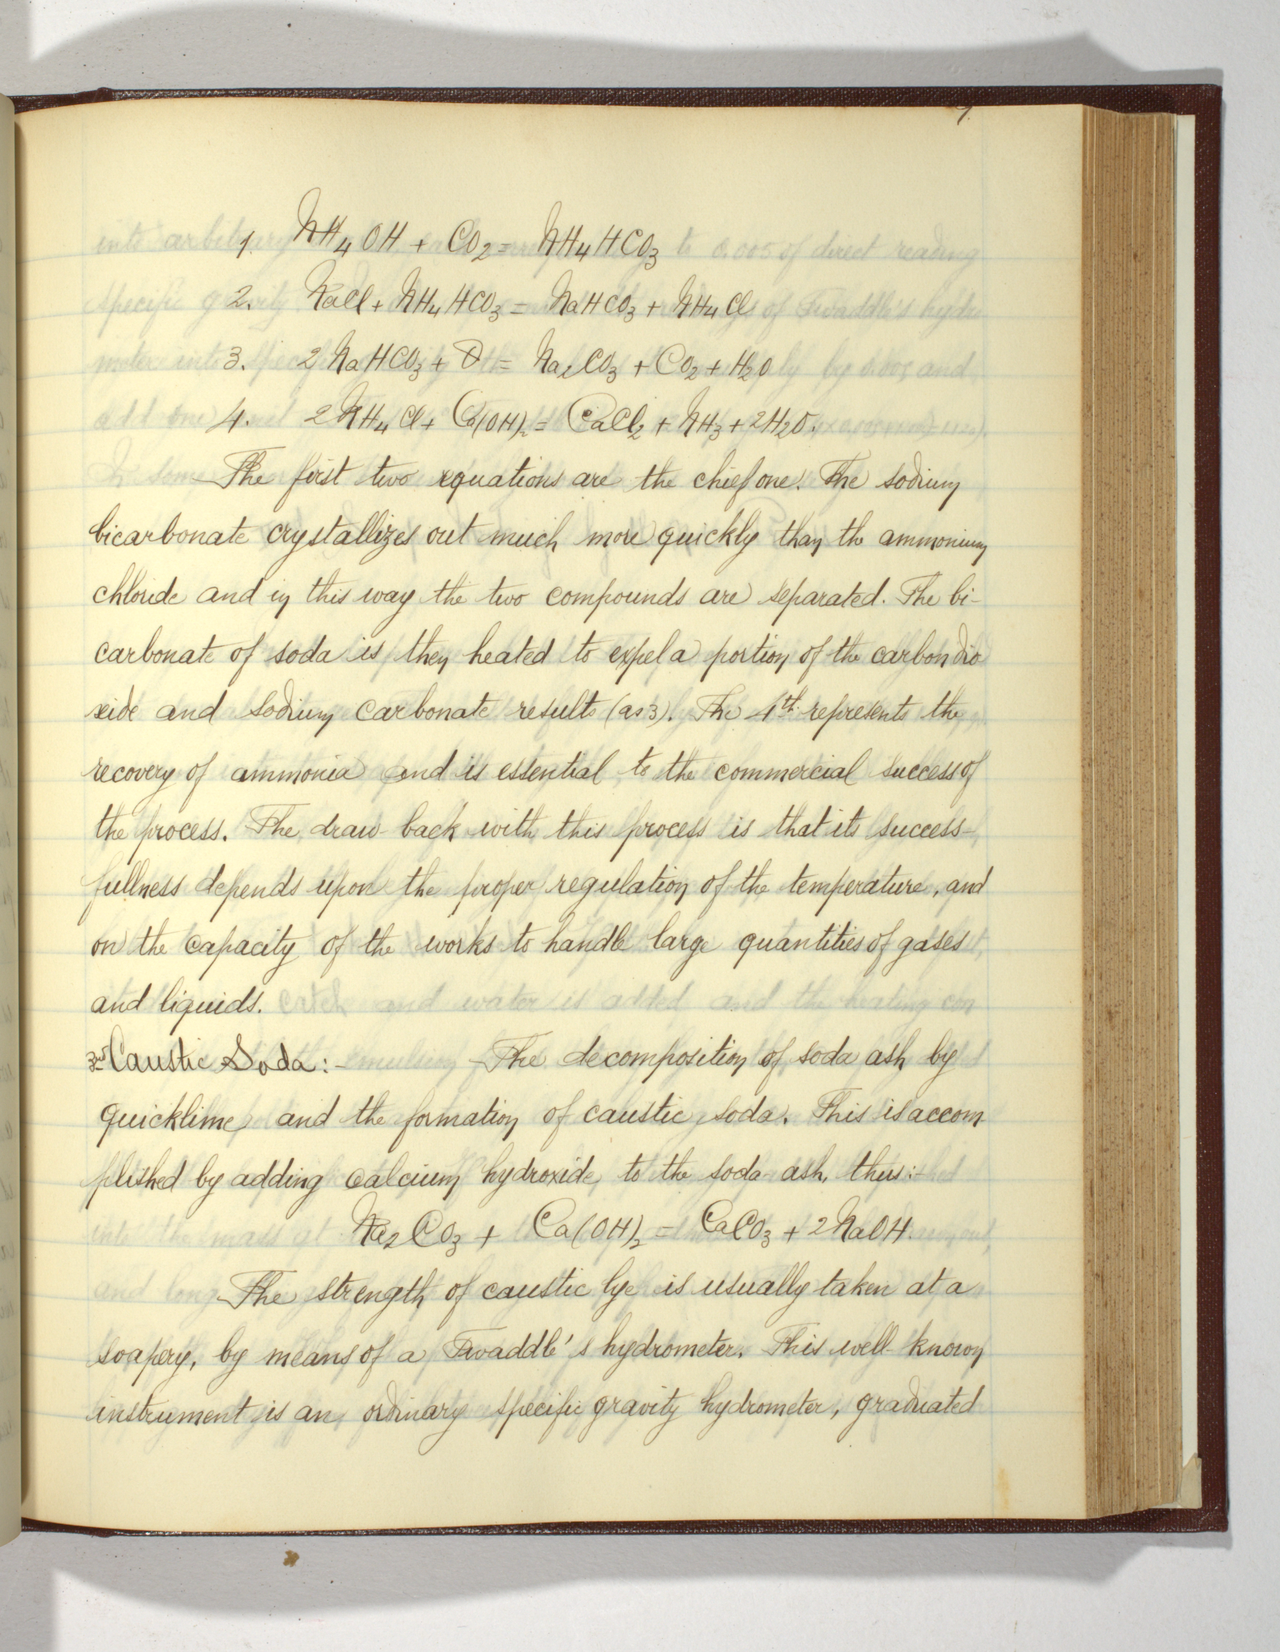 7.
1. NH4OH + CO2 = NH4HCO3
2. NaCl + NH4HCO3 = NaHCO3 + NH4Cl
3. 2NaHCO3 + = Na2CO3 + CO2 + H2O
4. 2NH4Cl + Ca(OH)2 = CaCl2 + NH3 + 2H2O.
The first two equations are the chief one. The sodium
bicarbonate crystallizes out much more quickly than the ammonium
chloride and in this way the two compounds are separated. The bi-
carbonate of soda is then heated to expel a portion of the carbon dio
xide and sodium carbonate results (as 3). The 4th represents the
recovery of ammonia and is essential to the commercial success of
the process. The draw back with this process is that its success-
fullness depends upon the proper regulation of the temperature, and
on the capacity of the works to handle large quantities of gases
and liquids.
3rd Caustic Soda:- The decomposition of soda ash by
quicklime and the formation of caustic soda. This is accom
plished by adding calcium hydroxide to the soda ash, thus:
Na2CO3 + Ca(OH)2 = CaCO3 + 2NaOH.
The strength of caustic lye is usually taken at a
soapery, by means of a Twaddle's hydrometer. This well known
instrument is an ordinary specific gravity hydrometer, graduated